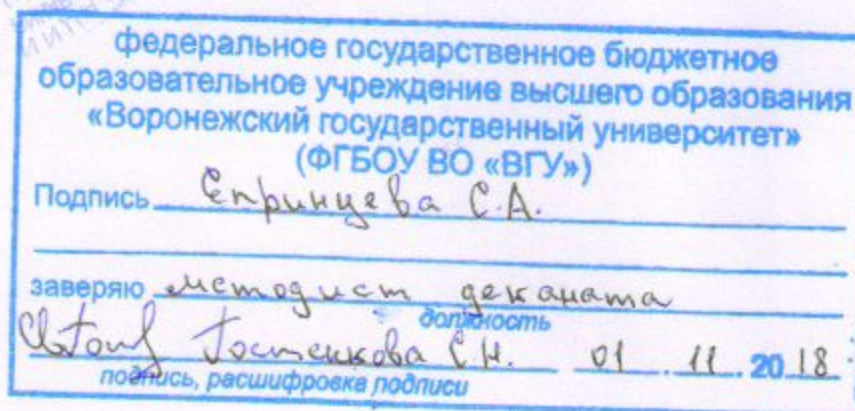 федеральное государственное бюджетное
образовательное учреждение высшего образования
«Воронежский государственный университет»
(ФГБОУ ВО «ВГУ»)
Подпись Епринцева С.А.
заверяю методист деканата
должность
Гостенкова С.Н. 01 . 11 . 20 18
подпись, расшифровка подписи